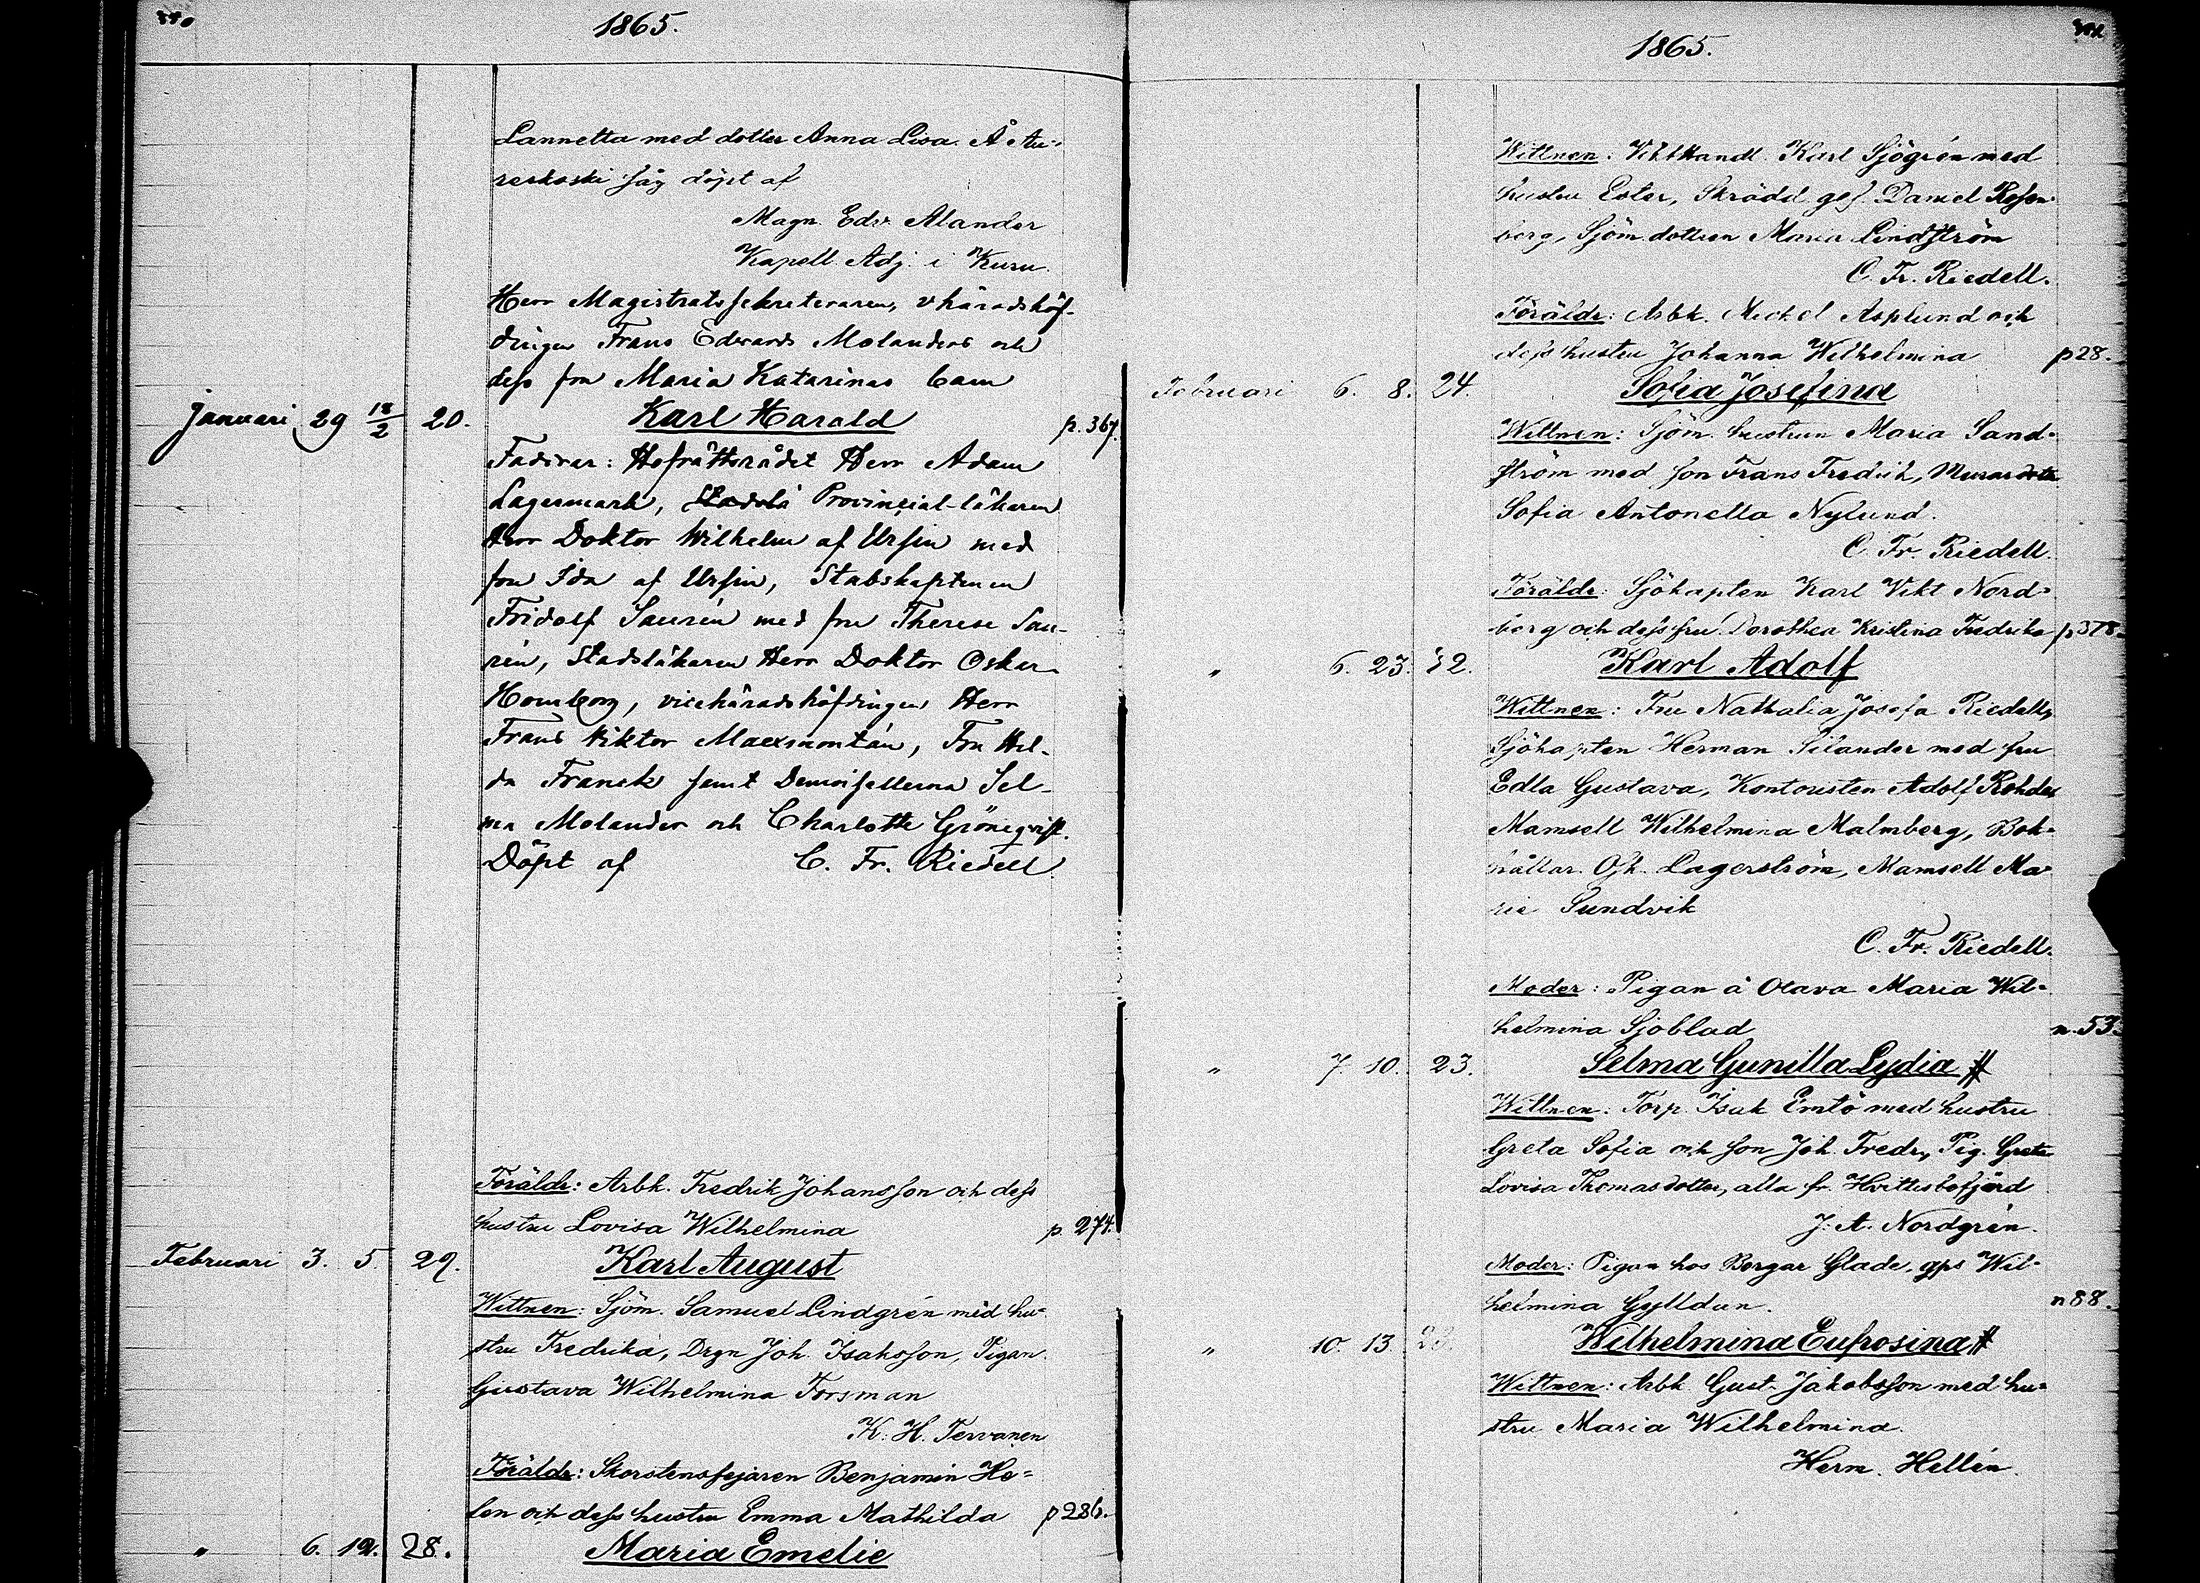 1865.
Lannetta med dotter Anna Lisa. Å Au-
reskoski såg döpt af
Magn. Edv. Alander
Kapell. Adj. i Kuru.
Herr Magistratssekreteraren, vhäradshöf-
dingen Frans Edvards Molanders och
dess fru Maria Katarinas barn
Januari 29 18/2 20. Karl Harald p. 367.
Faddrar: Hofrättsrådet Herr Adam
Lagermark, Provinçial-läkaren
Herr Doktor Wilhelm af Ursin med
fru Ida af Ursin, Stabskaptenen
Fridolf Saurén med fru Therese Sau-
rén, Stadsläkaren Herr Doktor Oskar
Homborg, vicehäradshöfdingen Herr
Frans Viktor Maexmontán, Fru Hil-
da Franck samt Demoisellerna Sel-
ma Molander och Charlotte Grönqvist.
Döpt af C. Fr. Riedell
Föräldr: Arbk. Fredrik Johansson och dess
hustru Lovisa Wilhelmina p. 274.
Februari 3. 5 29. Karl August
Wittnen: Sjöm. Samuel Lindgrén med hu-
stru Fredrika, Drgn Joh. Isaksson, Pigan
Gustava Wilhelmina Forsman
K. H. Tervanen
Föräldr: Skorstensfejaren Benjamin He-
len och dess hustru Emma Mathilda p 286.
" 6. 12. 28. Maria Emelie
1865.
Wittnen: Vikt.Handl. Karl Sjögrén med
hustru Ester, Skrädd. ges. Daniel Rosen-
berg, Sjöm. dottren Maria Lindström
C. Fr. Riedell.
Föräldr: Arbk. Mickel Asplund och
dess hustru Johanna Wilhelmina p 28.
Februari 6. 8. 24. Sofia Josefina
Wittnen: Sjöm. hustrun Maria Sand-
ström med son Frans Fredrik, Murar
Sofia Antonetta Nylund.
C. Fr. Riedell.
Föräldr: Sjökapten Karl Vikt Nord-
berg och dess fru Dorothea Kristina Fredrika p 378.
" 6. 23. 32. Karl Adolf
Wittnen: Fru Nathalia Josefa Riedell,
Sjökapten Herman Silander med fru
Edla Gustava, Kontoristen Adolf Rohde,
Mamsell Wilhelmina Malmberg, Bok-
hållar. Osk. Lagerström, Mamsell Ma-
rie Sundvik
C. Fr. Riedell.
Moder: Pigan å Otava Maria Wil-
helmina Sjöblad n. 53.
" 7. 10. 23. Selma Gunilla Lydia #
Wittnen: Torp. Isak Emtö med hustru
Greta Sofia och son Joh. Fredr., Pig. Greta
Lovisa Thomasdotter, alla fr. Hvittisbofjärd
J. A. Nordgrén.
Moder: Pigan hos Borgar Glade, gps Wil-
helmina Gylldun. n 88.
" 10. 13. 23. Wilhelmina Eufrosina #
Wittnen: Arbk Gust. Jakobsson med hu-
stru Maria Wilhelmina.
Herm. Hellén.